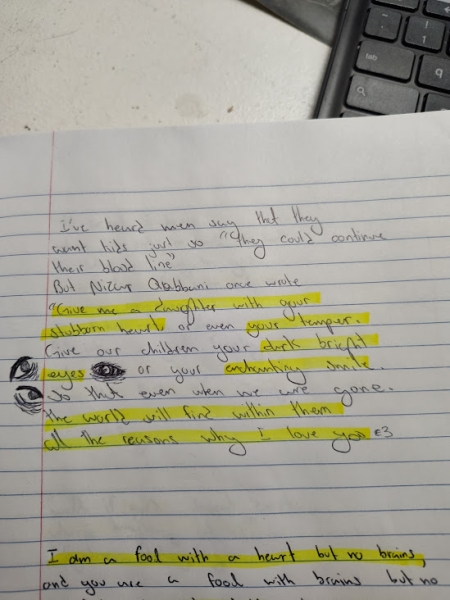 I've heard men say that they
want kids just so "they could continue
their blood line"
But Nizar Qabbani once wrote
"Give me a daughter with your
stubborn heart or even your temper.
Give our children your dark bright
eyes or your enchanting smile.
So that even when we are gone.
the world will find within them
all the reasons why I love you <3
I am a fool with a heart but no brains,
and you are a fool with brains but no
tab
q
!
1